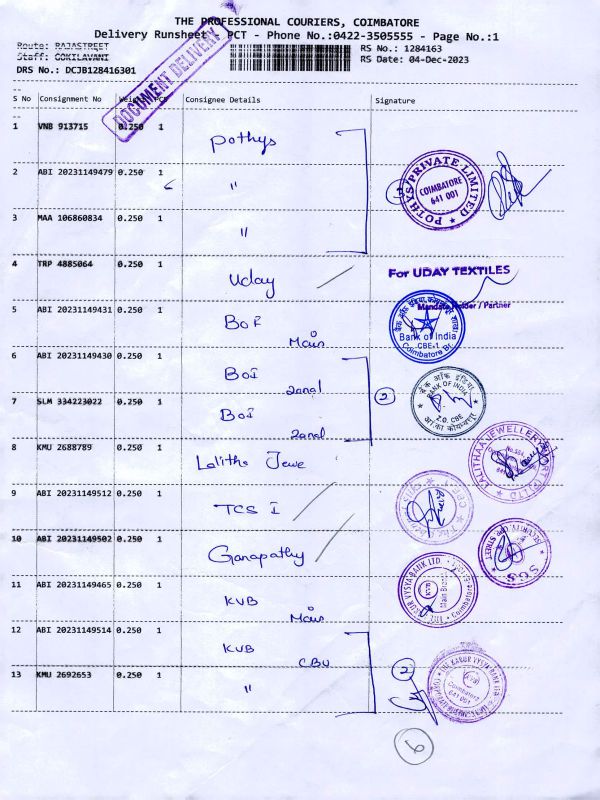 THE PROFESSIONAL COURIERS, COIMBATORE
Delivery Runsheet PCT - Phone No.:0422-3505555 - Page No.:1
Route: RAJASTREET
Staff: GOKILAVANI
DRS No.: DCJB128416301
RS No.: 1284163
RS Date: 04-Dec-2023
DOCUMENT DELIVERY
S No Consignment No Weight PCS Consignee Details Signature
1 VNB 913715 0.250 1 Pothys
2 ABI 20231149479 0.250 1 "
3 MAA 106860834 0.250 1 "
POTHYS PRIVATE LIMITED
COIMBATORE
641 001
4 TRP 4885064 0.250 1 Uday
For UDAY TEXTILES
Mandate Holder / Partner
5 ABI 20231149431 0.250 1 BOI Main
Bank of India
CBE-1
Coimbatore Br.
6 ABI 20231149430 0.250 1 BOI Zonal
7 SLM 334223022 0.250 1 BOI Zonal
2
बैंक ऑफ इंडिया
BANK OF INDIA
Z.O. CBE
8 KMU 2688789 0.250 1 Lalitha Jewe
LALITHAA JEWELLERY MART (P) LTD
9 ABI 20231149512 0.250 1 TCS I
10 ABI 20231149502 0.250 1 Ganapathy
SGS
11 ABI 20231149465 0.250 1 KVB Main
THE KARUR VYSYA BANK LTD.
Coimbatore
12 ABI 20231149514 0.250 1 KVB CBU
13 KMU 2692653 0.250 1 "
2
THE KARUR VYSYA BANK LTD
Coimbatore
641 001
6